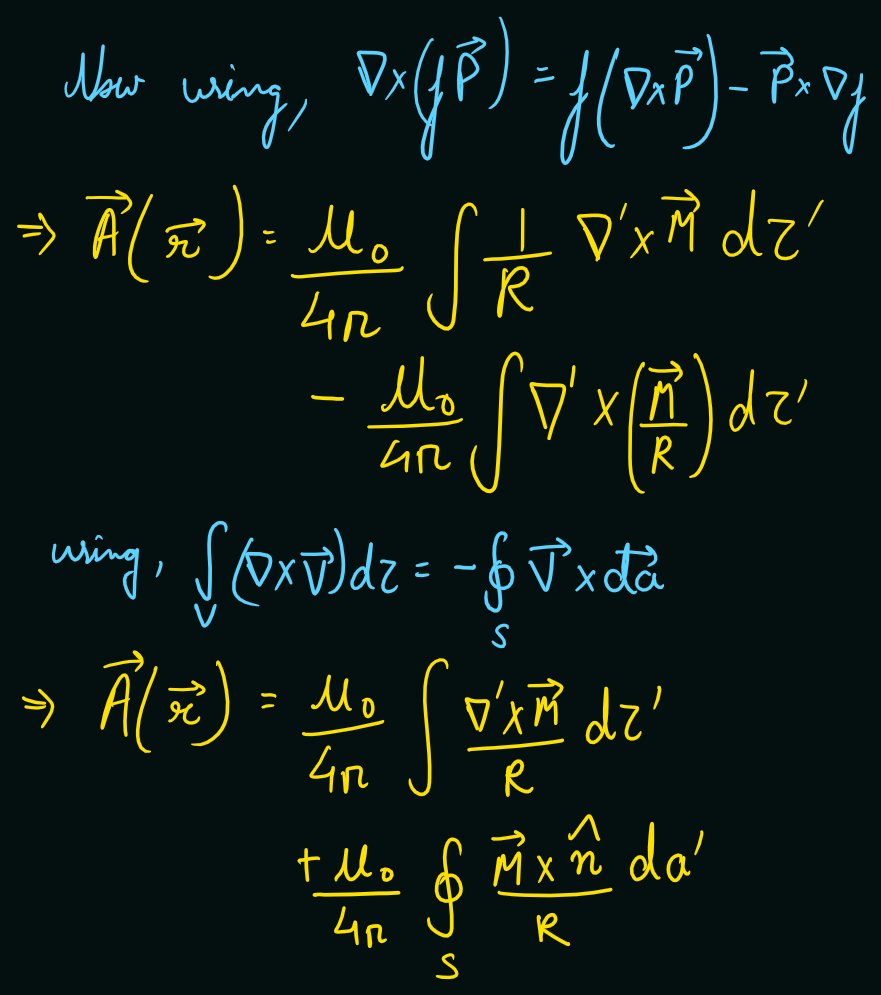 Now using, ∇×(f P⃗) = f(∇×P⃗) - P⃗×∇f
⇒ A⃗(r⃗) = μ₀/4π ∫ 1/R ∇'×M⃗ dτ'
- μ₀/4π ∫ ∇' × (M⃗/R) dτ'
using, ∫_V (∇×V⃗)dτ = -∮_S V⃗×da⃗
⇒ A⃗(r⃗) = μ₀/4π ∫ ∇'×M⃗/R dτ'
+ μ₀/4π ∮_S M⃗×n̂/R da'